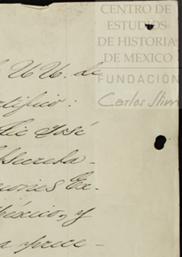 CENTRO DE
ESTUDIOS
DE HISTORIA
DE MEXICO
FUNDACIÓN
Carlos Slim
UU. de
rtifico:
Lic José
Secreta-
ciones Ex-
México, y
a prece-